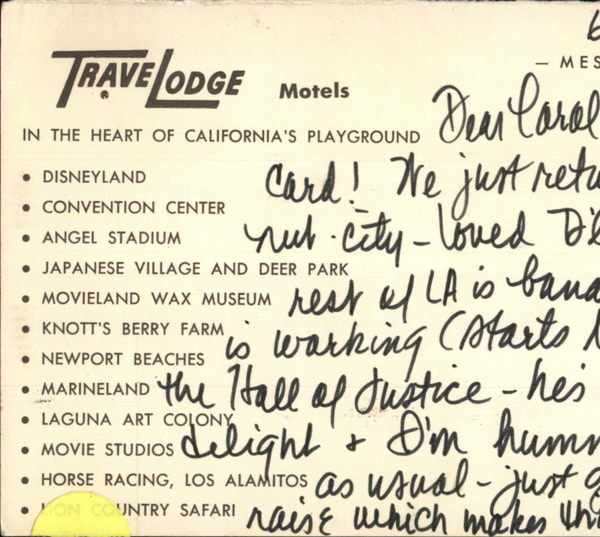 TRAVELODGE Motels
— MES
IN THE HEART OF CALIFORNIA'S PLAYGROUND
Dear Carol
• DISNEYLAND
card! We just retu
• CONVENTION CENTER
• ANGEL STADIUM
nut-city - loved D'l
• JAPANESE VILLAGE AND DEER PARK
• MOVIELAND WAX MUSEUM
rest of LA is
• KNOTT'S BERRY FARM
is working (starts
• NEWPORT BEACHES
• MARINELAND
the Hall of Justice - he's
• LAGUNA ART COLONY
• MOVIE STUDIOS
delight + I'm humm
• HORSE RACING, LOS ALAMITOS
as usual - just g
• LION COUNTRY SAFARI
raise which makes thi